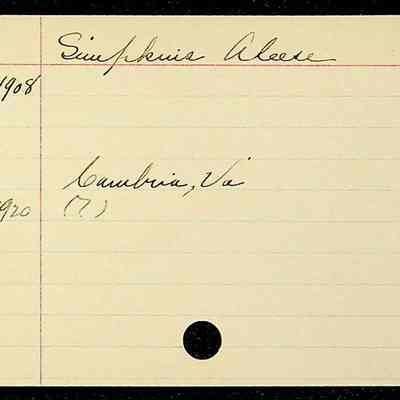 Simpkins Aleese
1908
Cambria, Va
1920 (7)